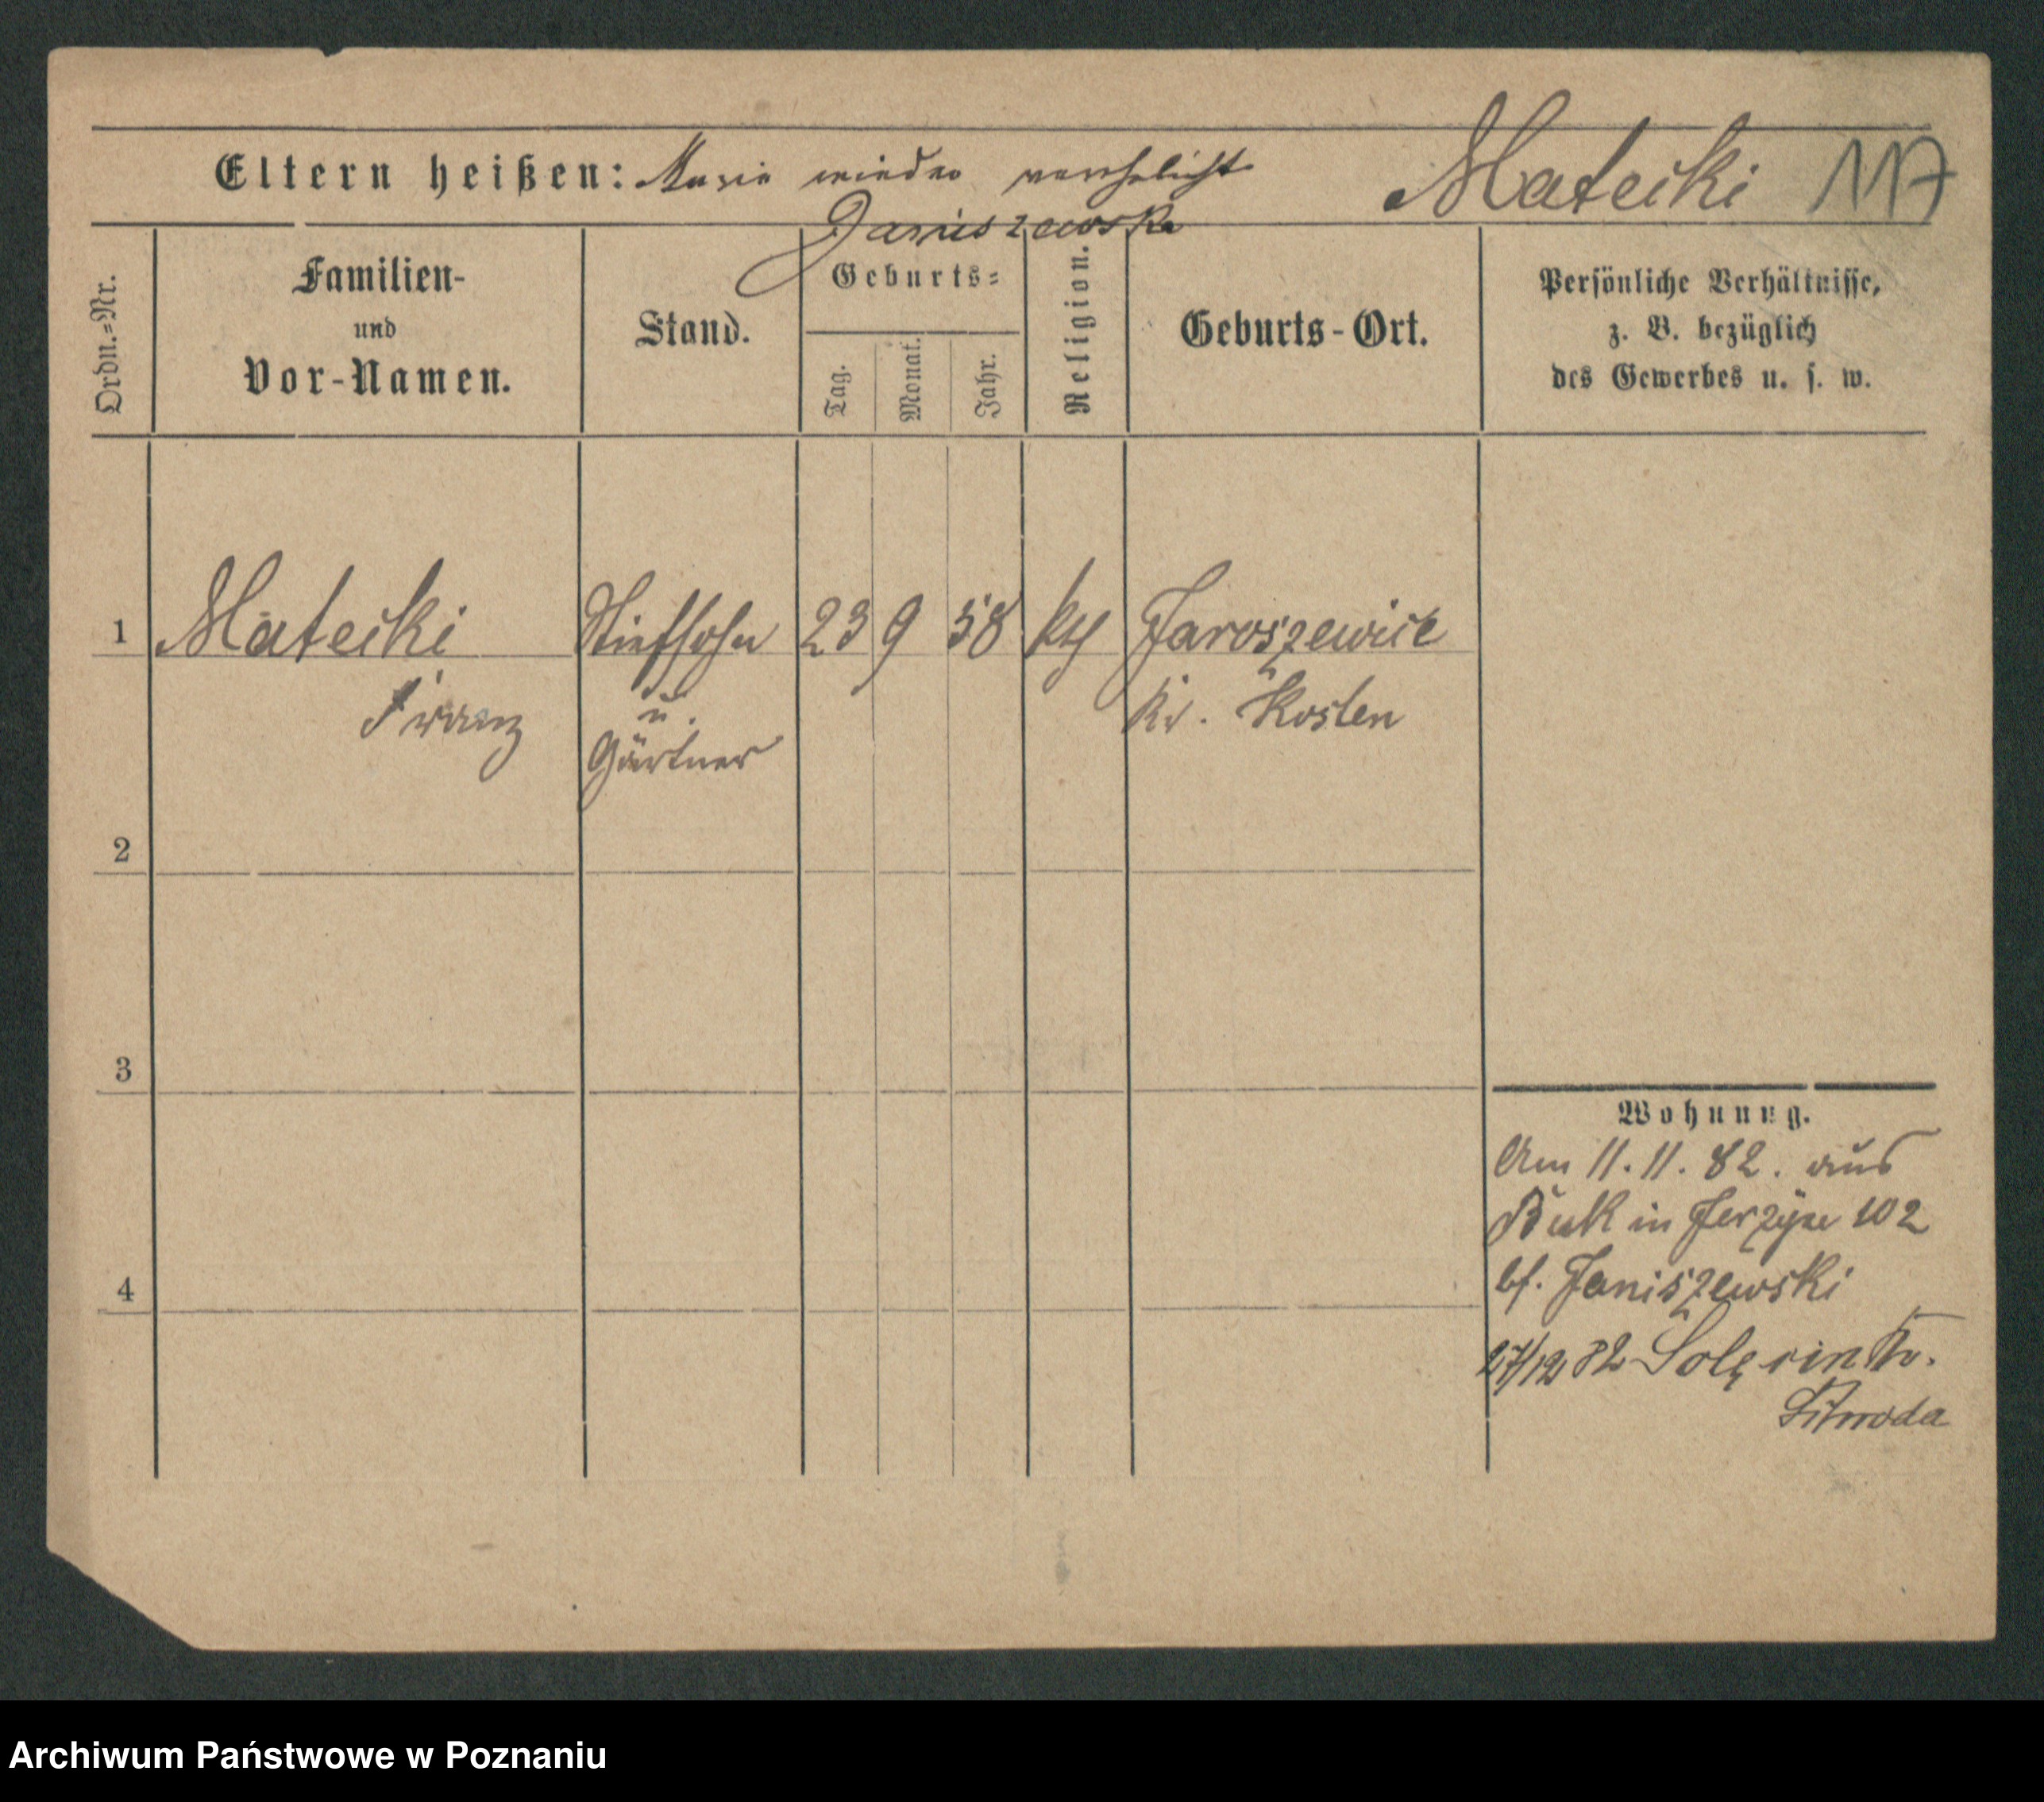 Eltern heißen: Marie wieder verehelicht Matecki 117
Januszewska
Ordn.=Nr.
Familien-
und
Vor-Namen.
Stand.
Geburts=
Tag.
Monat.
Jahr.
Religion.
Geburts-Ort.
Persönliche Verhältnisse,
z. B. bezüglich
des Gewerbes u. s. w.
1 Matecki Stiefsohn 23 9 58 kth Jaroszewice
Franz u. Kr. Kosten
Gärtner
2
3
4
Wohnung.
Am 11. 11. 82. aus
Buk in Jerzyce 102
bf. Janiszewski
27/12 82 Kr.
Schroda
Archiwum Państwowe w Poznaniu